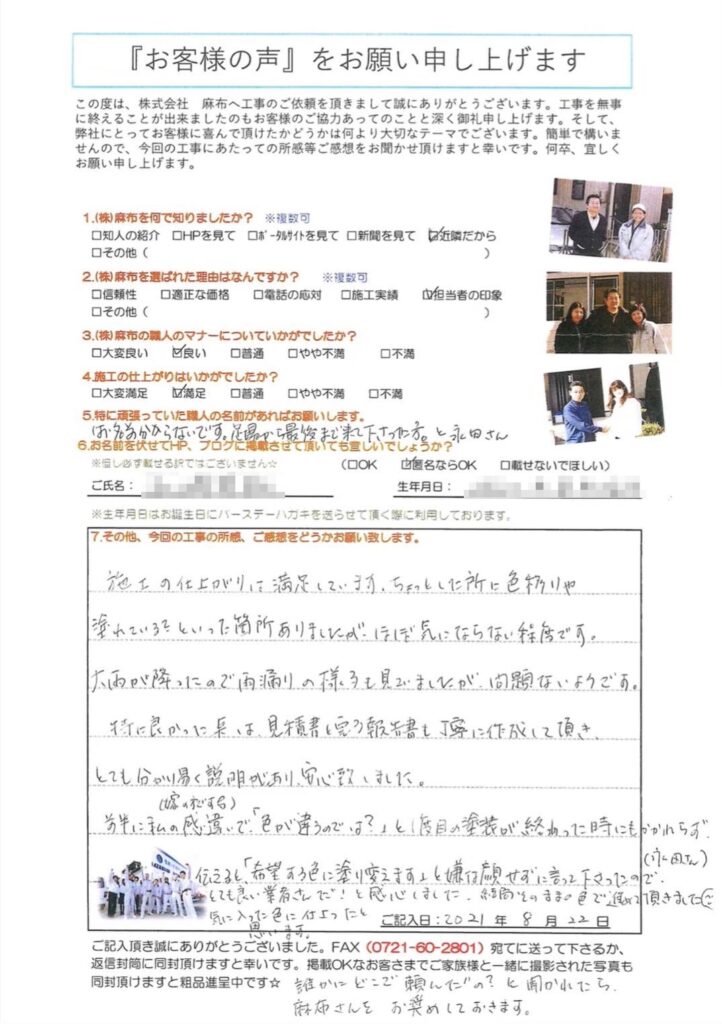 『お客様の声』をお願い申し上げます
この度は、株式会社 麻布へ工事のご依頼を頂きまして誠にありがとうございます。工事を無事
に終えることが出来ましたのもお客様のご協力あってのことと深く御礼申し上げます。そして、
弊社にとってお客様に喜んで頂けたかどうかは何より大切なテーマでございます。簡単で構いま
せんので、今回の工事にあたっての所感等ご感想をお聞かせ頂けますと幸いです。何卒、宜しく
お願い申し上げます。
1.(株)麻布を何で知りましたか? ※複数可
□知人の紹介 □HPを見て □ポータルサイトを見て □新聞を見て ☑近隣だから
□その他( )
2.(株)麻布を選ばれた理由はなんですか? ※複数可
□信頼性 □適正な価格 □電話の応対 □施工実績 ☑担当者の印象
□その他( )
3.(株)麻布の職人のマナーについていかがでしたか?
□大変良い ☑良い □普通 □やや不満 □不満
4.施工の仕上がりはいかがでしたか?
□大変満足 ☑満足 □普通 □やや不満 □不満
5.特に頑張っていた職人の名前があればお願いします。
お名前分からないです。足場から最後まで来て下さった方。と永田さん
6.お名前を伏せてHP、ブログに掲載させて頂いても宜しいでしょうか?
※但し必ず載せる訳ではございません☆ (□OK ☑匿名ならOK □載せないでほしい)
ご氏名: 生年月日:
※生年月日はお誕生日にバースデーハガキを送らせて頂く際に利用しております。
7.その他、今回の工事の所感、ご感想をどうかお願い致します。
施工の仕上がりに満足しています。ちょっとした所に色移りや
塗れている?といった箇所ありましたが、ほぼ気にならない程度です。
大雨が降ったので雨漏りの様子も見ていましたが、問題ないようです。
特に良かった点は、見積書も完了報告書も丁寧に作成して頂き、
とても分かり易く説明があり、安心致しました。
(嫁の私する)
前半に私の感違いで、「色が違うのでは?」と1度目の塗装が終わった時にもかかわらず、
(永田さん)
伝えると、「希望する色に塗り変えます」と嫌な顔せずに言って下さったので、
とても良い業者さんだ!と感心しました。結局そのままの色で進めて頂きました
気に入った色に仕上がったと
思います。
ご記入日:2021年 8月 22日
ご記入頂き誠にありがとうございました。FAX(0721-60-2801)宛てに送って下さるか、
返信封筒に同封頂けますと幸いです。掲載OKなお客さまでご家族様と一緒に撮影された写真も
同封頂けますと粗品進呈中です☆
誰かにどこで頼んだの?と聞かれたら、
麻布さんをお奨めしておきます。